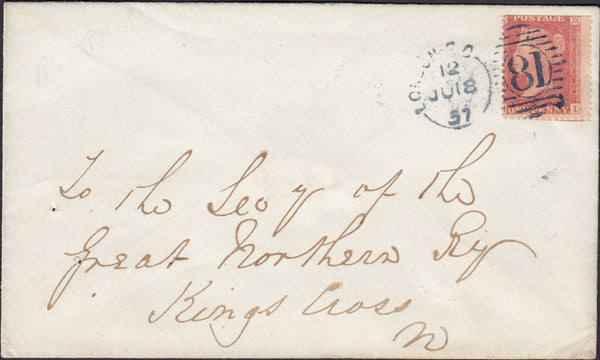 POSTAGE
81
ONE PENNY L
LONDON
12
JU18
57
To the Secy of the
Great Northern Rly
Kings Cross
N